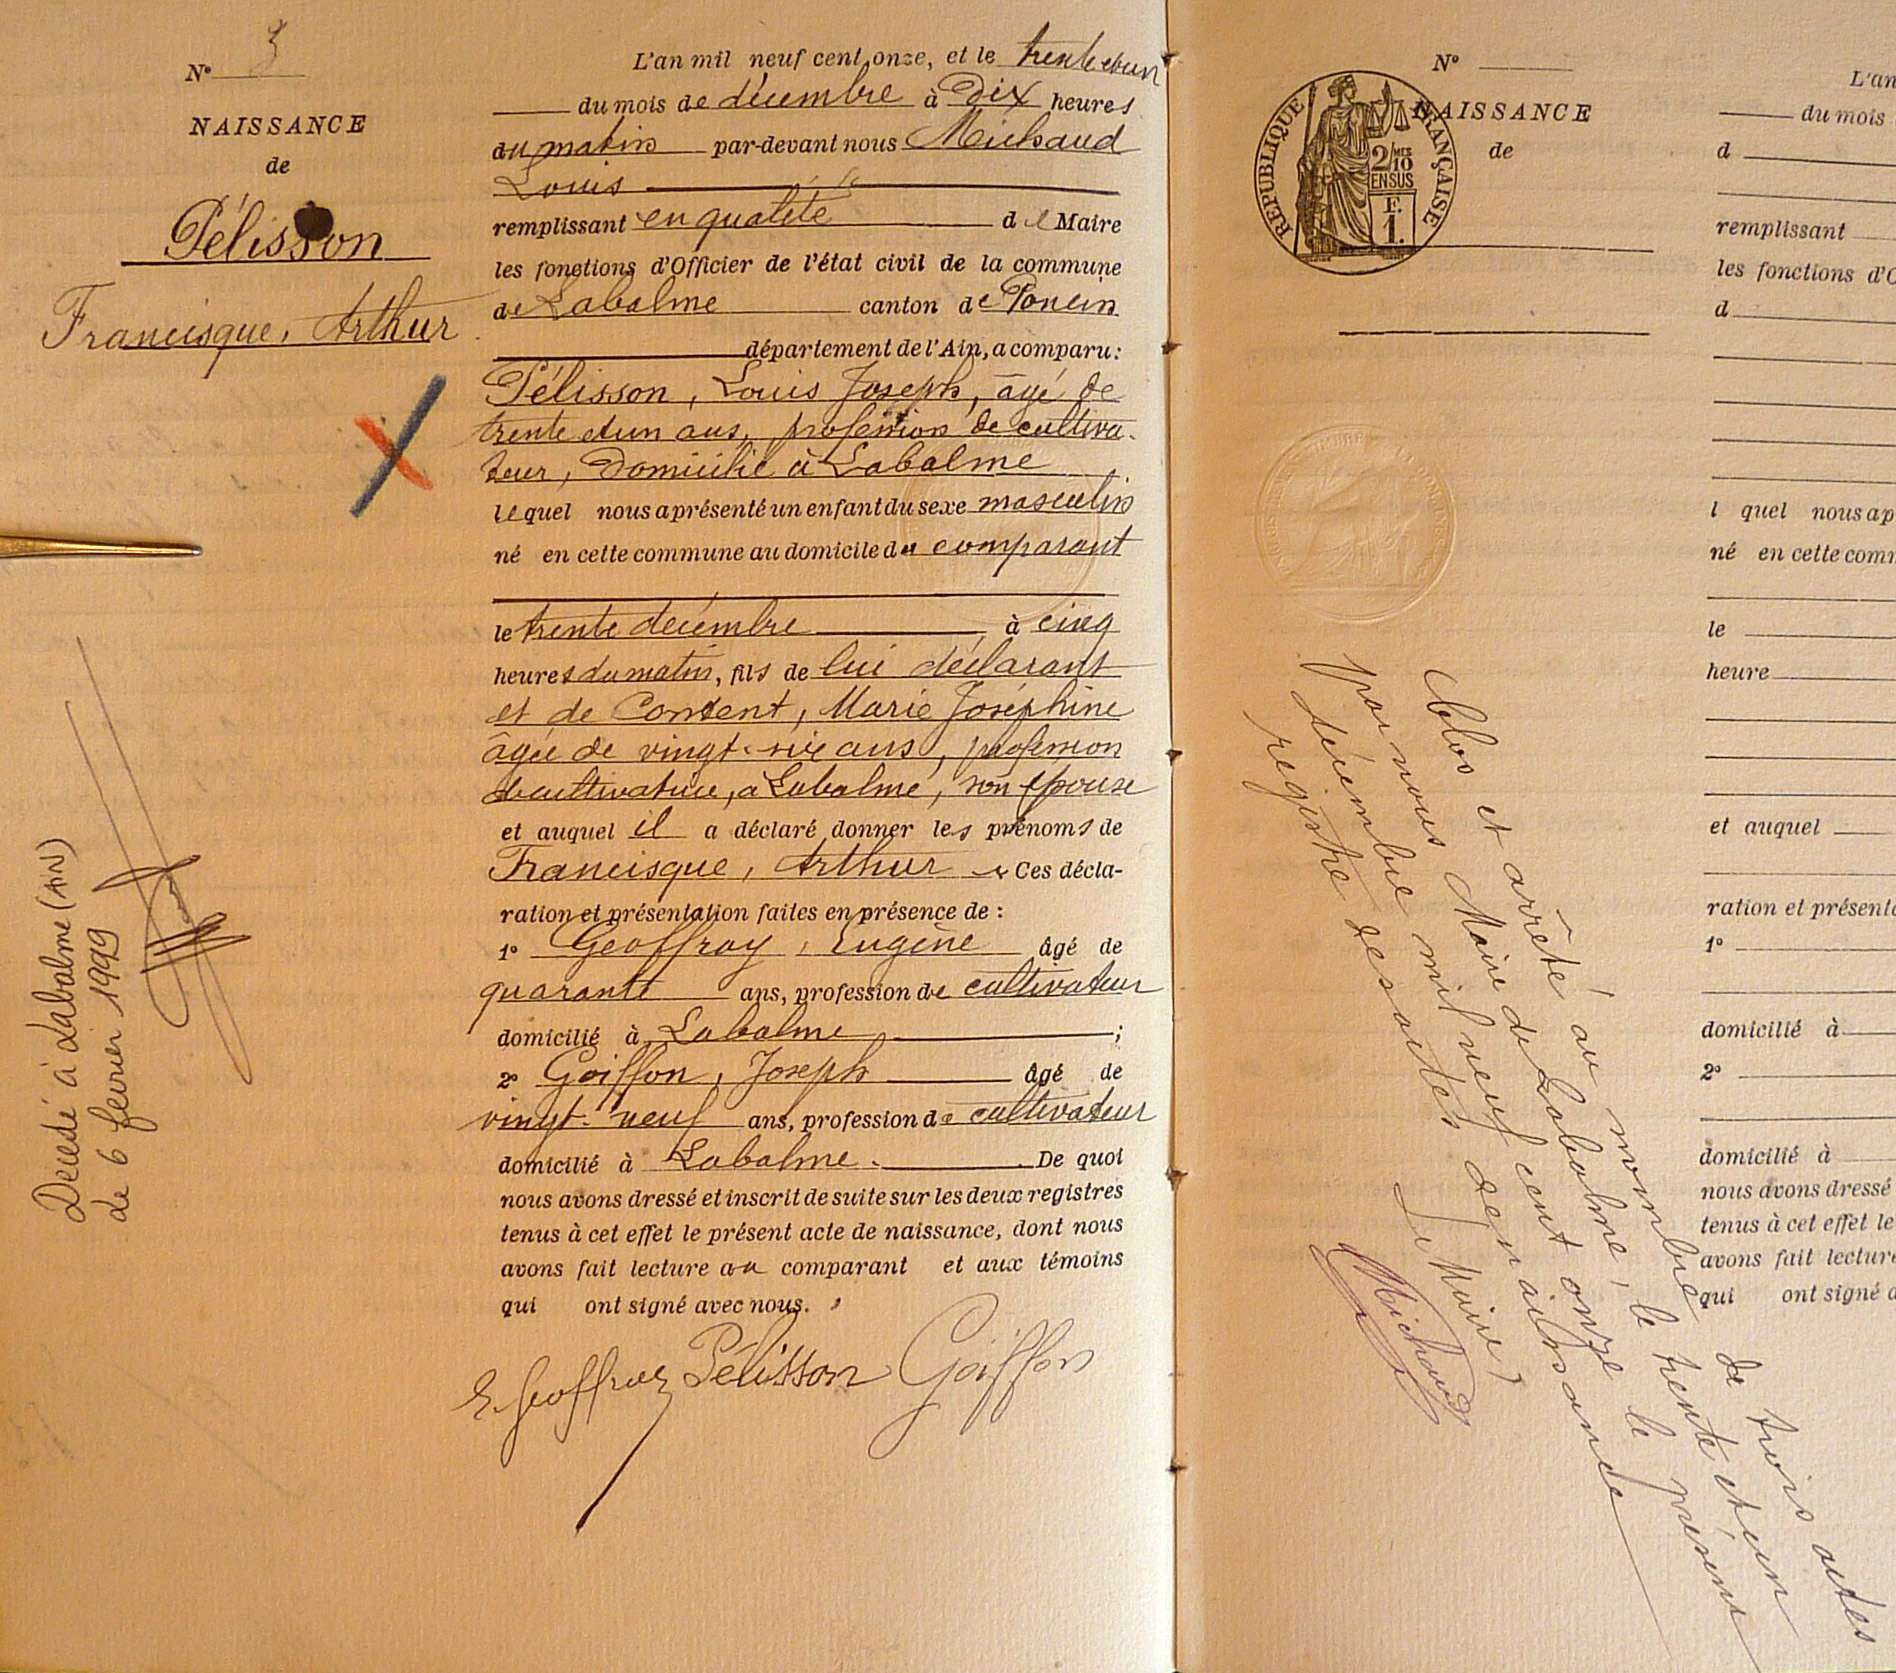 N° 3
NAISSANCE
de
Pélisson
Francisque, Arthur
Decedé à Labalme (Ain)
le 6 fevrier 1999
L'an mil neuf cent onze, et le trente et un
du mois de décembre à Dix heures
du matin par-devant nous Michaud
Louis
remplissant en qualité de Maire
les fonctions d'Officier de l'état civil de la commune
de Labalme canton de Poncin
département de l'Ain, a comparu :
Pélisson, Louis Joseph, âgé de
trente et un ans, profession de cultiva-
teur, Domicilié à Labalme
lequel nous a présenté un enfant du sexe masculin
né en cette commune au domicile du comparant
le trente décembre à cinq
heures du matin, fils de lui déclarant
et de Content, Marie Joséphine
âgée de vingt-six ans, profession
de cultivatrice, à Labalme, son épouse
et auquel il a déclaré donner les prénoms de
Francisque, Arthur Ces décla-
ration et présentation faites en présence de :
1° Geoffray, Eugène âgé de
quarante ans, profession de cultivateur
domicilié à Labalme ;
2° Goiffon, Joseph âgé de
vingt-neuf ans, profession de cultivateur
domicilié à Labalme. De quoi
nous avons dressé et inscrit de suite sur les deux registres
tenus à cet effet le présent acte de naissance, dont nous
avons fait lecture au comparant et aux témoins
qui ont signé avec nous.
E. Geoffray Pélisson Goiffon
N°
NAISSANCE
de
REPUBLIQUE FRANÇAISE
2/10 MES
EN SUS
F.
1.
Clos et arrêté au nombre de trois actes
par nous Maire de Labalme, le trente et un
décembre mil neuf cent onze le présent
registre des actes de naissance
Le Maire,
Michaud
L'an
du mois
d
remplissant
les fonctions d'O
d
l quel nous a p
né en cette comm
le
heure
et auquel
ration et présenta
1°
domicilié à
2°
domicilié à
nous avons dressé
tenus à cet effet le
avons fait lecture
qui ont signé a